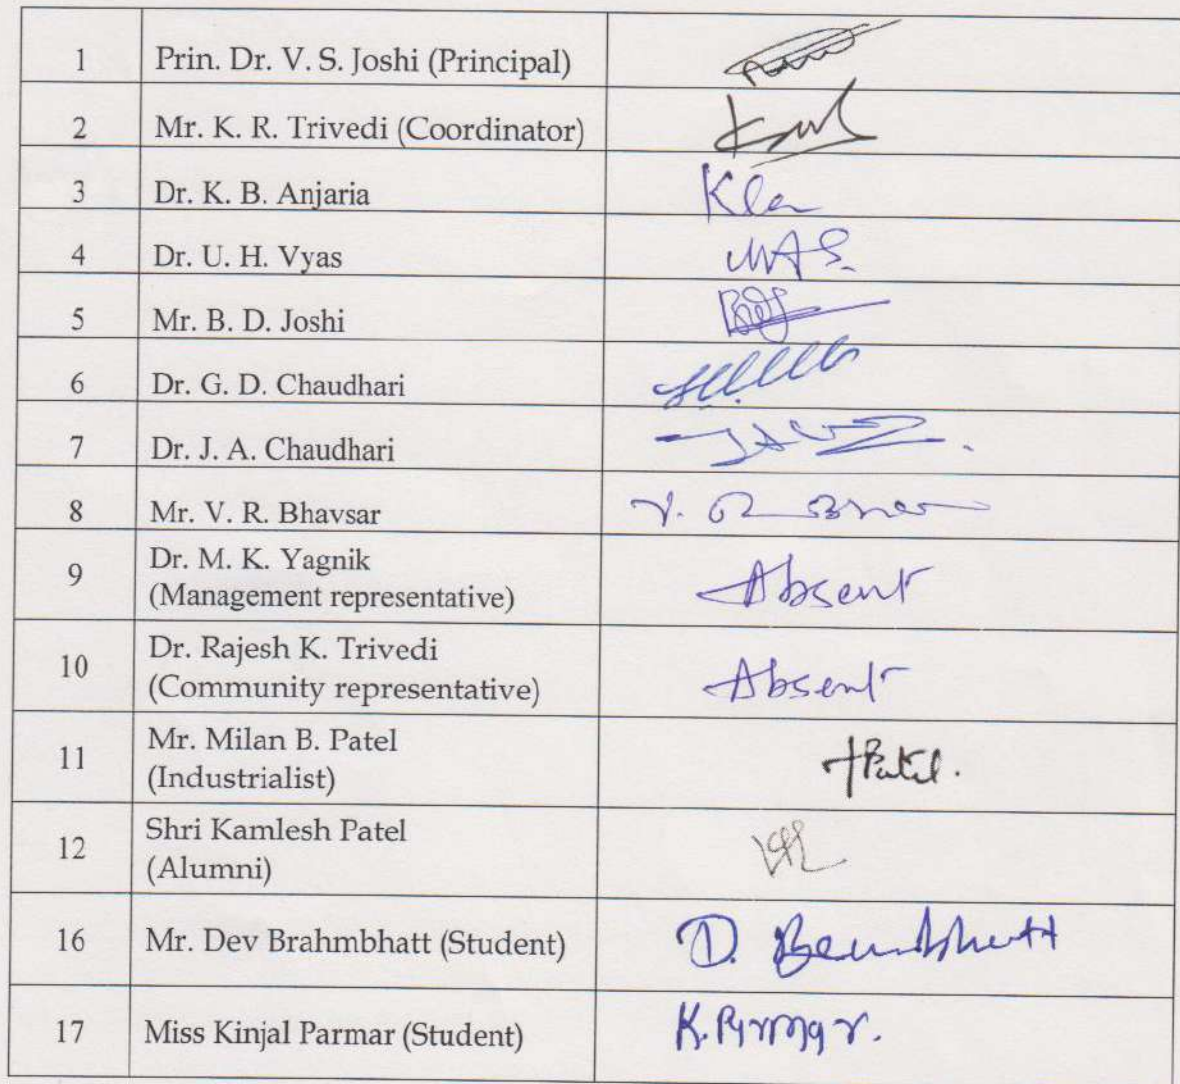 1 Prin. Dr. V. S. Joshi (Principal)
2 Mr. K. R. Trivedi (Coordinator)
3 Dr. K. B. Anjaria
4 Dr. U. H. Vyas
5 Mr. B. D. Joshi
6 Dr. G. D. Chaudhari
7 Dr. J. A. Chaudhari
8 Mr. V. R. Bhavsar
9 Dr. M. K. Yagnik
(Management representative) Absent
10 Dr. Rajesh K. Trivedi
(Community representative) Absent
11 Mr. Milan B. Patel
(Industrialist) Patel.
12 Shri Kamlesh Patel
(Alumni)
16 Mr. Dev Brahmbhatt (Student) D.
17 Miss Kinjal Parmar (Student) K.